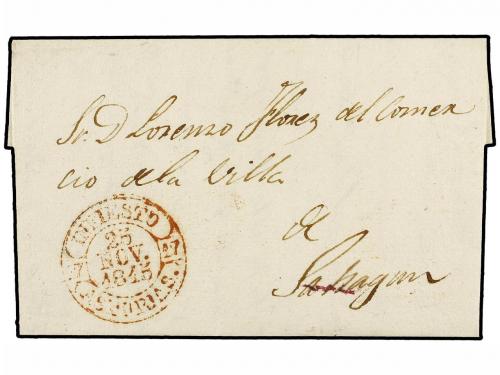 Sr. D Lorenzo Florez del Comer
cio de la Villa
de
Sahagun
INFIESTO
25
NOV.
1845